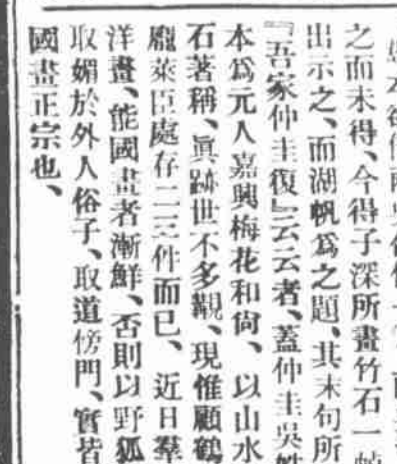 之而未得、今得子深所畫竹石一幀
出示之、而湖帆爲之題、其末句所
『吾家仲圭復』云云者、蓋仲圭吳姓
本爲元人嘉興梅花和尙、以山水
石著稱、眞跡世不多覯、現惟顧鶴
龐萊臣處存二三件而已、近日羣
洋畫、能國畫者漸鮮、否則以野狐
取媚於外人俗子、取道傍門、實皆
國畫正宗也、